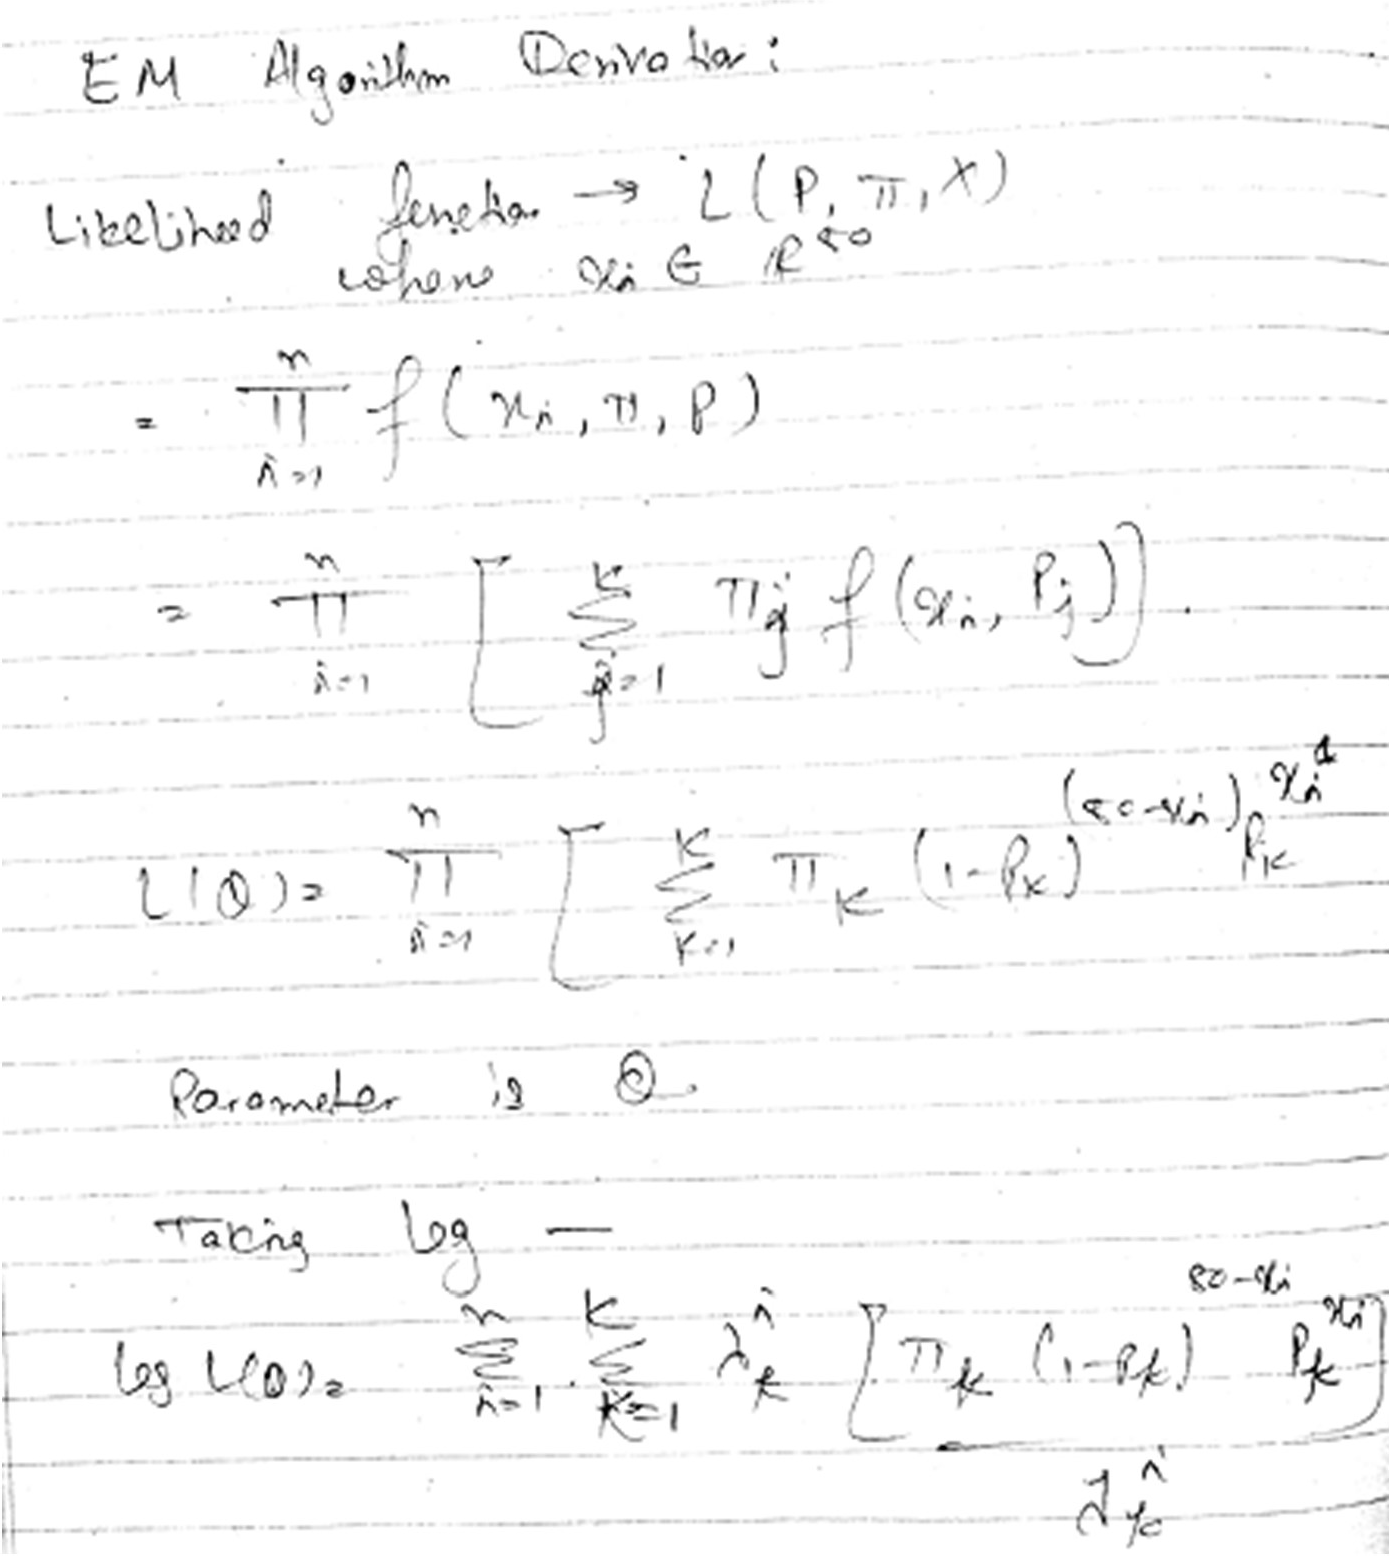 EM Algorithm Derivation:
Likelihood function → L(P, π, X)
where xi ∈ R^50
= ∏_{i=1}^{n} f(xi, π, P)
= ∏_{i=1}^{n} [ Σ_{j=1}^{K} πj f(xi, Pj) ].
L(θ) = ∏_{i=1}^{n} [ Σ_{K=1}^{K} π_K (1-P_K)^{(50-xi)} P_K^{xi}
Parameter is θ.
Taking log —
log L(θ) = Σ_{i=1}^{n} . Σ_{K=1}^{K} λ_k^i [ π_k (1-P_k)^{50-xi} P_k^{xi} ] / λ_k^i